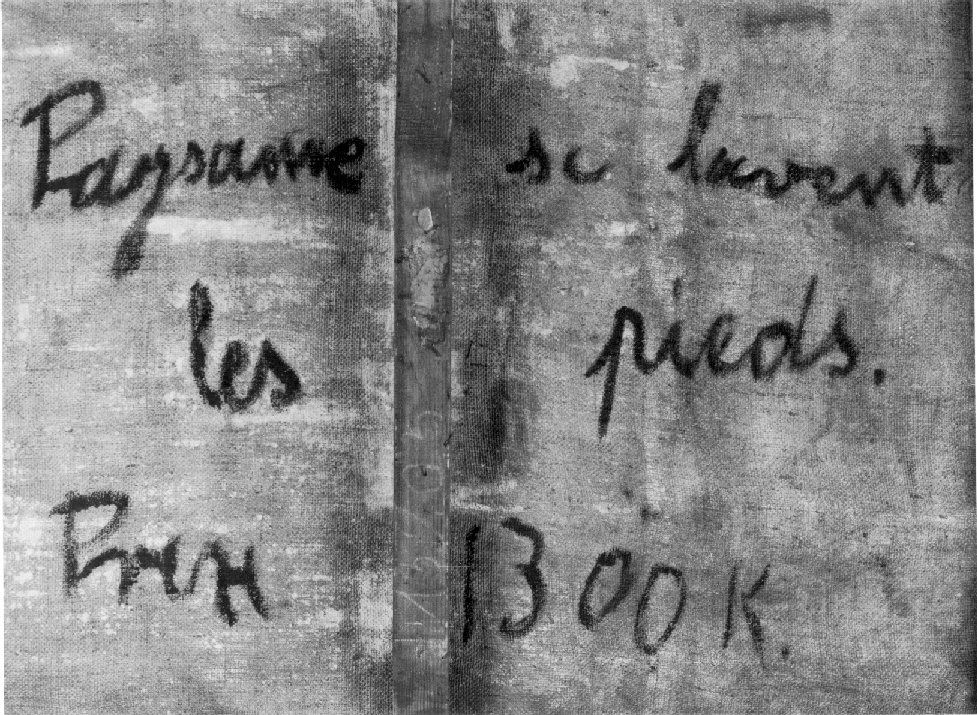 Paysanne se lavent
les pieds.
Prix 1300 K.